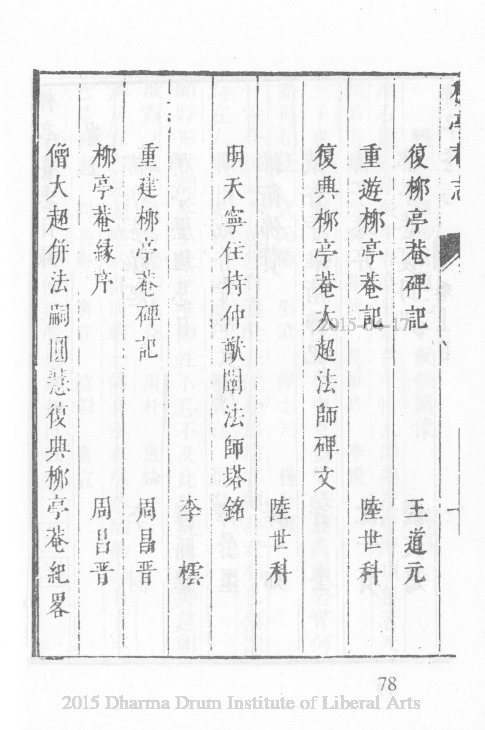 柳亭菴志
復柳亭菴碑記 王道元
重遊柳亭菴記 陸世科
復興柳亭菴大超法師碑文
陸世科
明天寧住持仲猷闡法師塔銘
李橒
重建柳亭菴碑記 周昌晋
柳亭菴緣序 周昌晋
僧大超併法嗣圓慧復興柳亭菴紀畧
2015-04-17
78
2015 Dharma Drum Institute of Liberal Arts